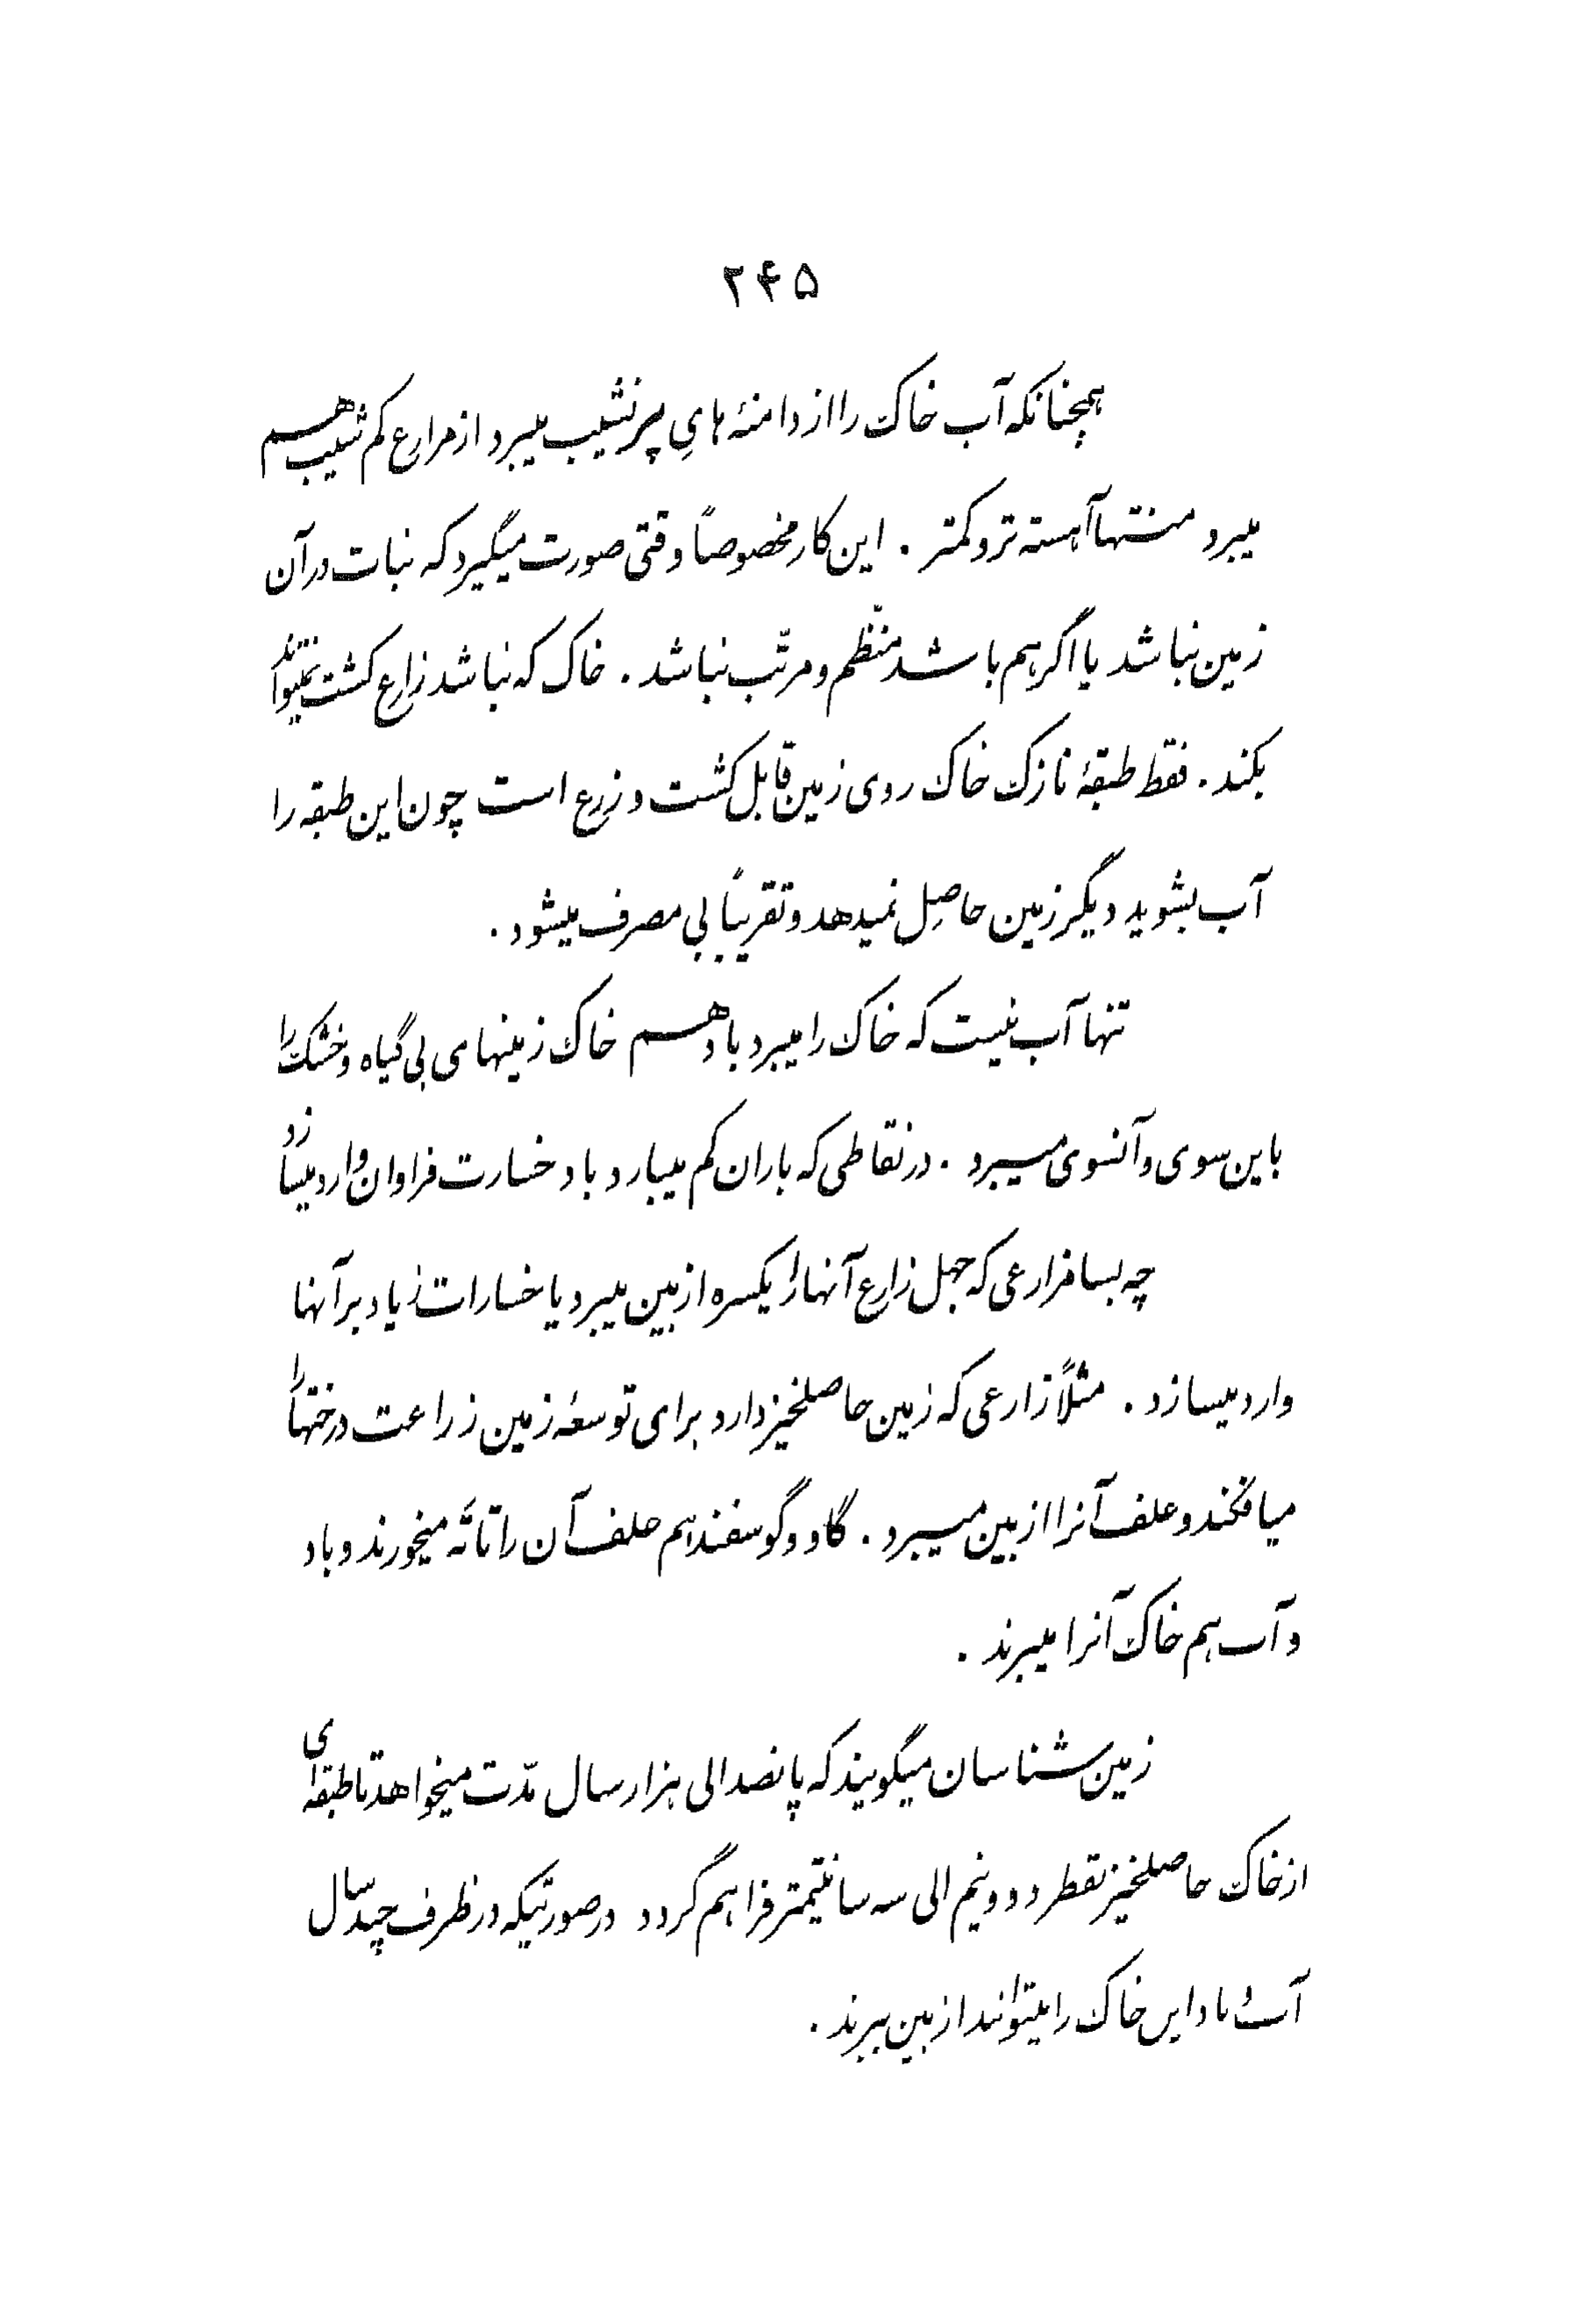 ۲۴۵
همچنانکه آب خاک را از دامنه‌های پر نشیب میبرد از مزارع کم شیب هم
میبرد منتها آهسته تر و کمتر . این کار مخصوصاً وقتی صورت میگیرد که نبات در آن
زمین نباشد یا اگر هم باشد منظّم و مرتّب نباشد . خاک که نباشد زارع کشت نمیتواند
بکند . فقط طبقهٔ نازک خاک روی زمین قابل کشت و زرع است چون این طبقه را
آب بشوید دیگر زمین حاصِل نمیدهد و تقریباً بی مصرف میشود .
تنها آب نیست که خاک را میبرد باد هم خاک زمینهای بی گیاه و خشک را
باین سوی و آنسوی میبرد . در نقاطی که باران کم میبارد باد خسارت فراوان وارد میسازد
چه بسا مزارعی که جهل زارع آنها را یکسره از بین میبرد یا خسارات زیاد بر آنها
وارد میسازد . مثلاً زارعی که زمین حاصلخیز دارد برای توسعهٔ زمین زراعت درختها را
میافکند و علف آنرا از بین میبرد . گاو و گوسفند هم علف آن را تا ته میخورند و باد
و آب هم خاک آنرا میبرند .
زمین شناسان میگویند که پانصد الی هزار سال مدّت میخواهد تا طبقه‌ای
از خاک حاصلخیز بقطر دو و نیم الی سه سانتیمتر فراهم گردد در صورتیکه در ظرف چند سال
آب و باد این خاک را میتوانند از بین ببرند .